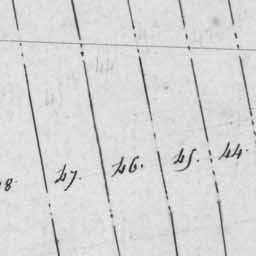 8. 47. 46. 45. 44.